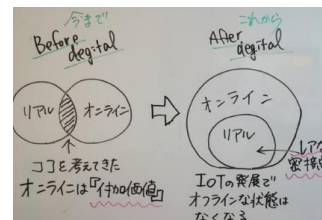 今まで
Before
degital
リアル
オンライン
ココを考えてきた
オンラインは『付加価値』
これから
After
degital
オンライン
リアル
レアな
密接点
IOTの発展で
オフラインな状態は
なくなる